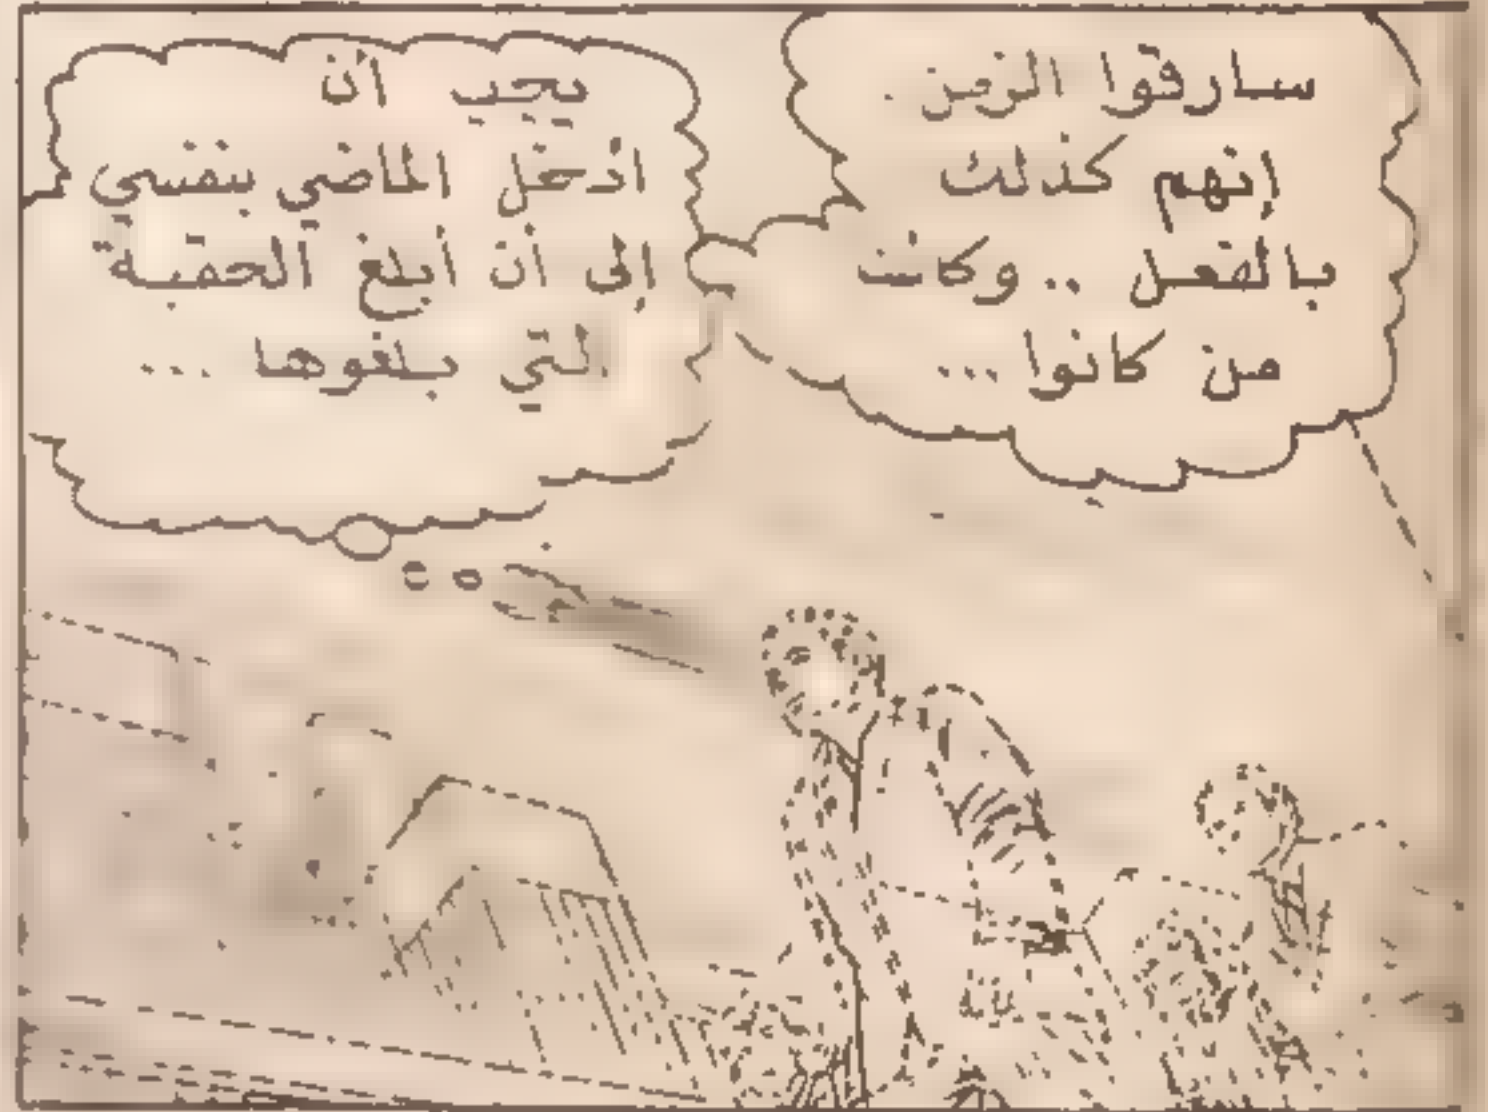 سارقوا الزمن .
إنهم كذلك
بالفعل .. وكائنـ
من كانوا ...
يجب أن
ادخل الماضي بنفسي
إلى أن أبلغ الحقبة
التي بلغوها ...